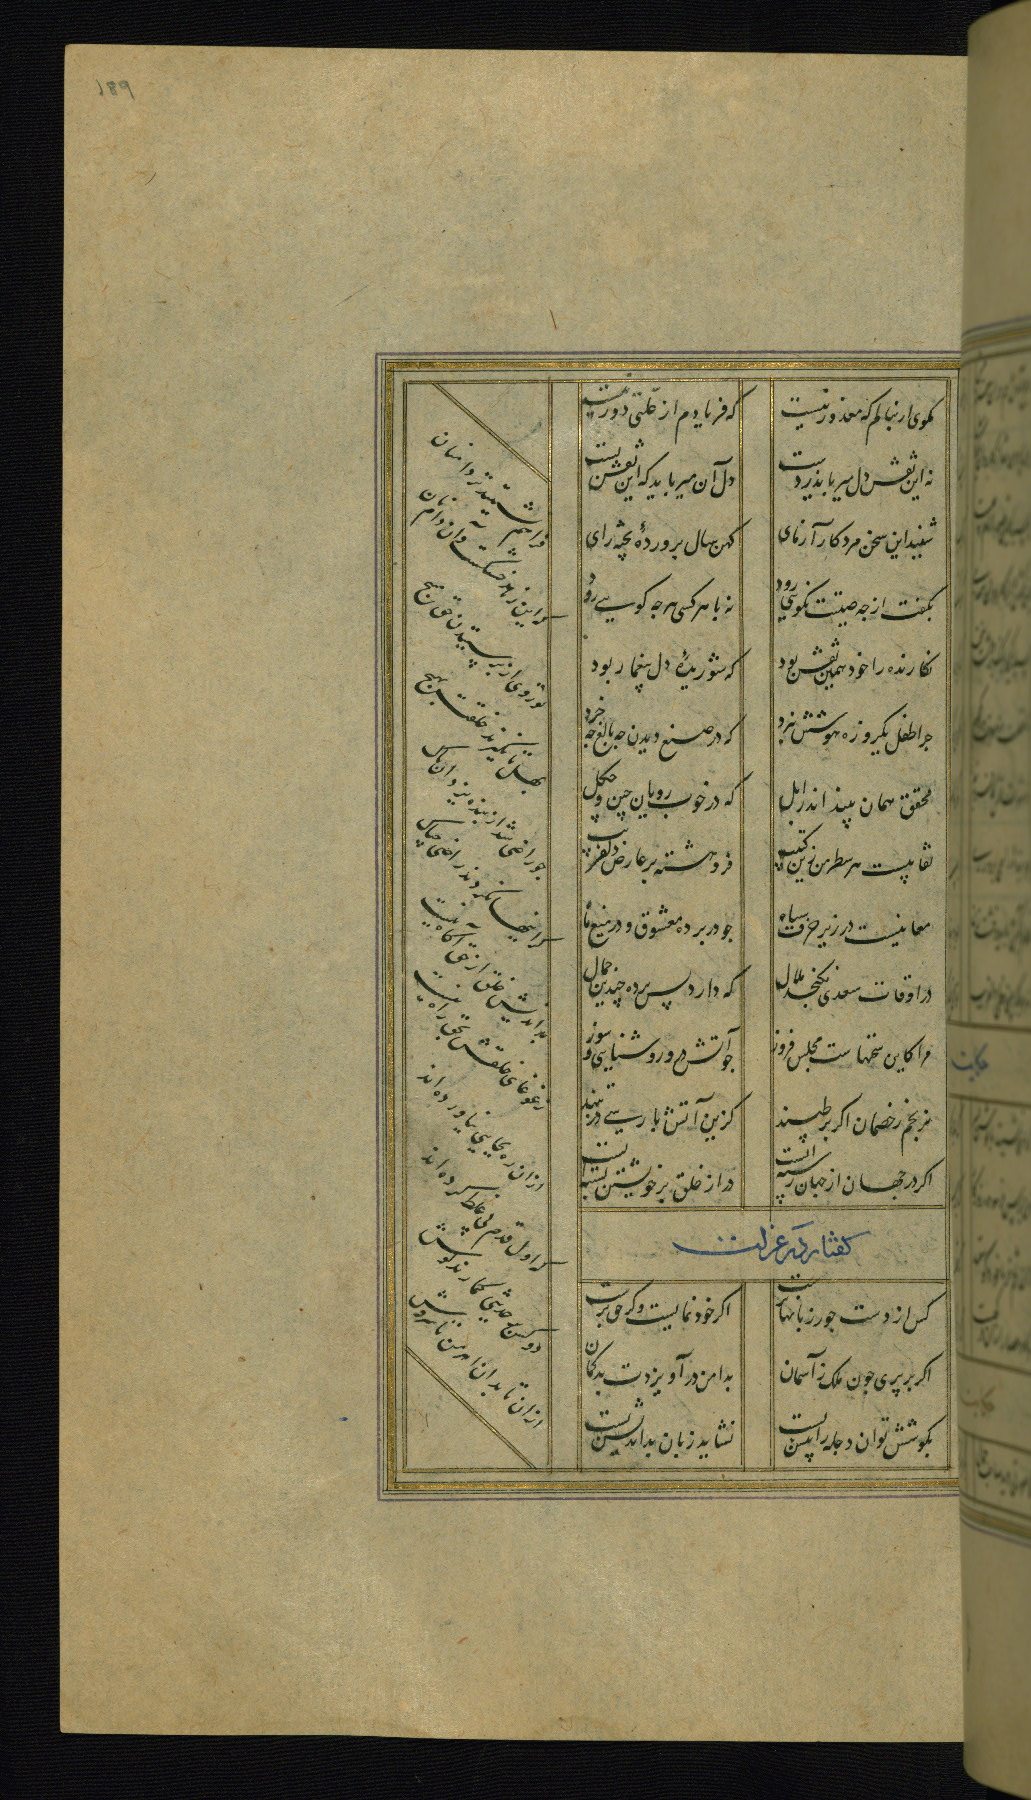 189
بگوی ار بنالم که معذور نیست
که فریادم از علتی دور نیست
نه این نقش دل میرباید ز دست
دل آن میرباید که این نقش بست
شنید این سخن مرد کار آزمای
کهن سال پروردهٔ پخته رای
بگفت ار چه صیت نکویی رود
نه با هر کسی هر چه گویی رود
نگارنده را خود همین نقش بود
که شوریدهٔ دل بیغما ربود
چرا طفل یکروزه هوشش نبرد
که در صنع دیدن چه بالغ چه خرد
محقق همان بیند اندر ابل
که در خوب رویان چین و چگل
نقابیست هر سطر من زین کتیب
فرو هشته بر عارض دلفریب
معانیست در زیر حرف سیاه
چو در پرده معشوق و در میغ ماه
در اوقات سعدی نگنجد ملال
که دارد پس پرده چندین جمال
مرا کاین سخنهاست مجلس فروز
چو آتش درو روشنایی و سوز
نرنجم ز خصمان اگر بر طپند
کزین آتش پارسی در تبند
اگر در جهان از جهان رسته ایست
در از خلق بر خویشتن بسته ایست
گفتار در عزلت
کس از دست جور زبانها نرست
اگر خود نمایست و گر حق پرست
اگر بر پری چون ملک ز آسمان
بدامن در آویزدت بدگمان
بکوشش توان دجله را پیش بست
نشاید زبان بداندیش بست
فراهم نشینند تر دامنان
که این زهد خشکست و آن دام نان
تو روی از پرستیدن حق مپیچ
بهل تا نگیرند خلقت بهیچ
چو راضی شد از بنده یزدان پاک
گر اینها نگردند راضی چه باک
بداندیش خلق از حق آگاه نیست
ز غوغای خلقش بحق راه نیست
از آن ره بجایی نیاورده اند
که اول قدم پی غلط کرده اند
دو کس بر حدیثی گمارند گوش
ازان تا بدان اهرمن تا سروش